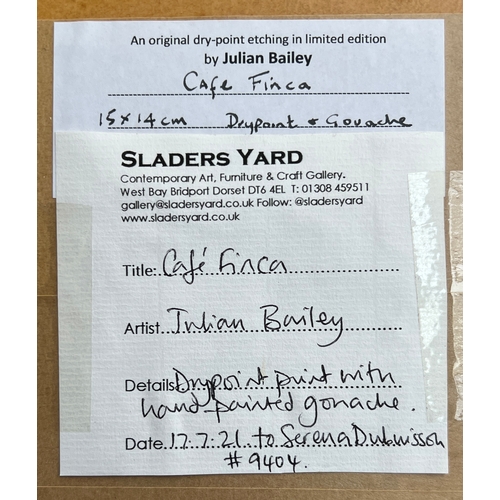 An original dry-point etching in limited edition
by Julian Bailey
Cafe Finca
15 x 14 cm Drypoint + Gouache
SLADERS YARD
Contemporary Art, Furniture & Craft Gallery.
West Bay Bridport Dorset DT6 4EL T: 01308 459511
gallery@sladersyard.co.uk Follow: @sladersyard
www.sladersyard.co.uk
Title: Café Finca
Artist Julian Bailey
Details Drypoint print with
hand-painted gouache.
Date 17.7.21. to Serena
#9404.